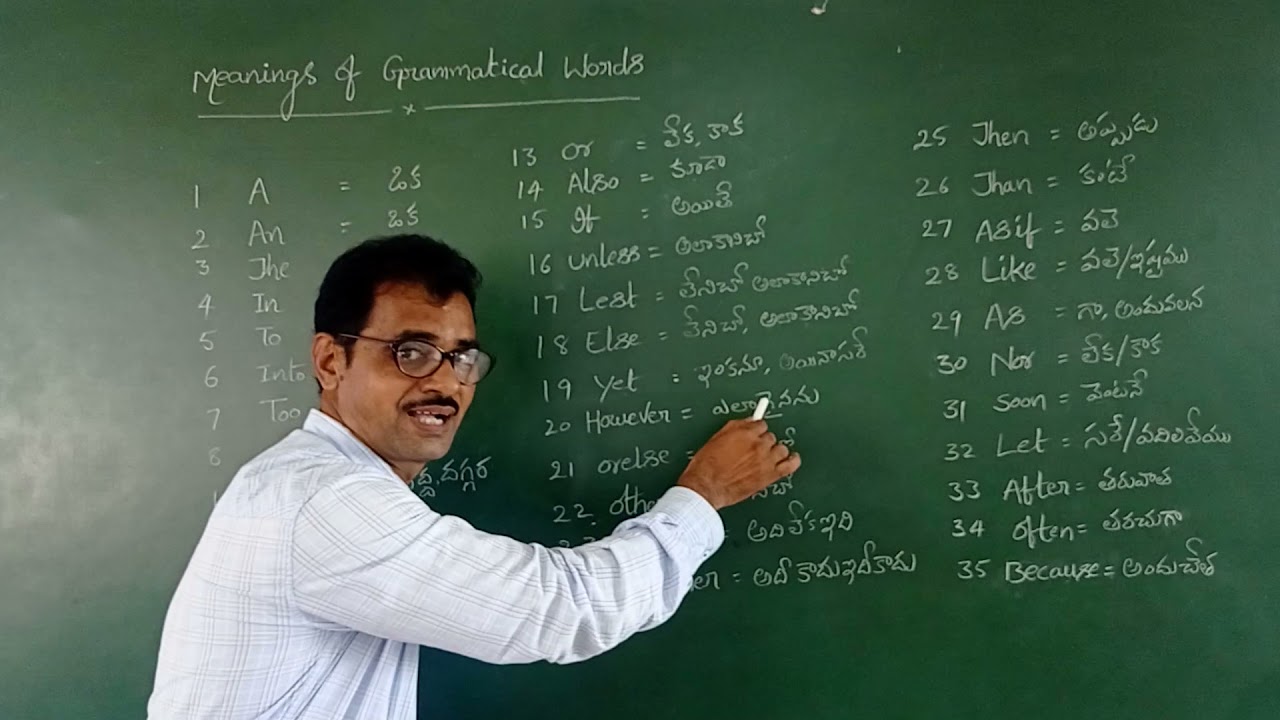 Meanings of Grammatical Words
1 A = ఒక
2 An = ఒక
3 The
4 In
5 To
6 Into
7 Too
8
దగ్గర
13 or = లేక, కాక
14 Also = కూడా
15 If = అయితే
16 unless = అలాకానిచో
17 Lest = లేనిచో అలాకానిచో
18 Else = లేనిచో, అలాకానిచో
19 Yet = ఇంకనూ, అయినాసరే
20 However =
21 orelse =
22
= అదిలేకఇది
= అదీ కాదుఇదీకాదు
25 Then = అప్పుడు
26 Than = కంటే
27 Asif = వలె
28 Like = వలె/ఇష్టము
29 As = గా, అందువలన
30 Nor = లేక/కాక
31 soon = వెంటనే
32 Let = సరే/వదిలివేయు
33 After = తరువాత
34 often = తరచుగా
35 Because = అందుచేత